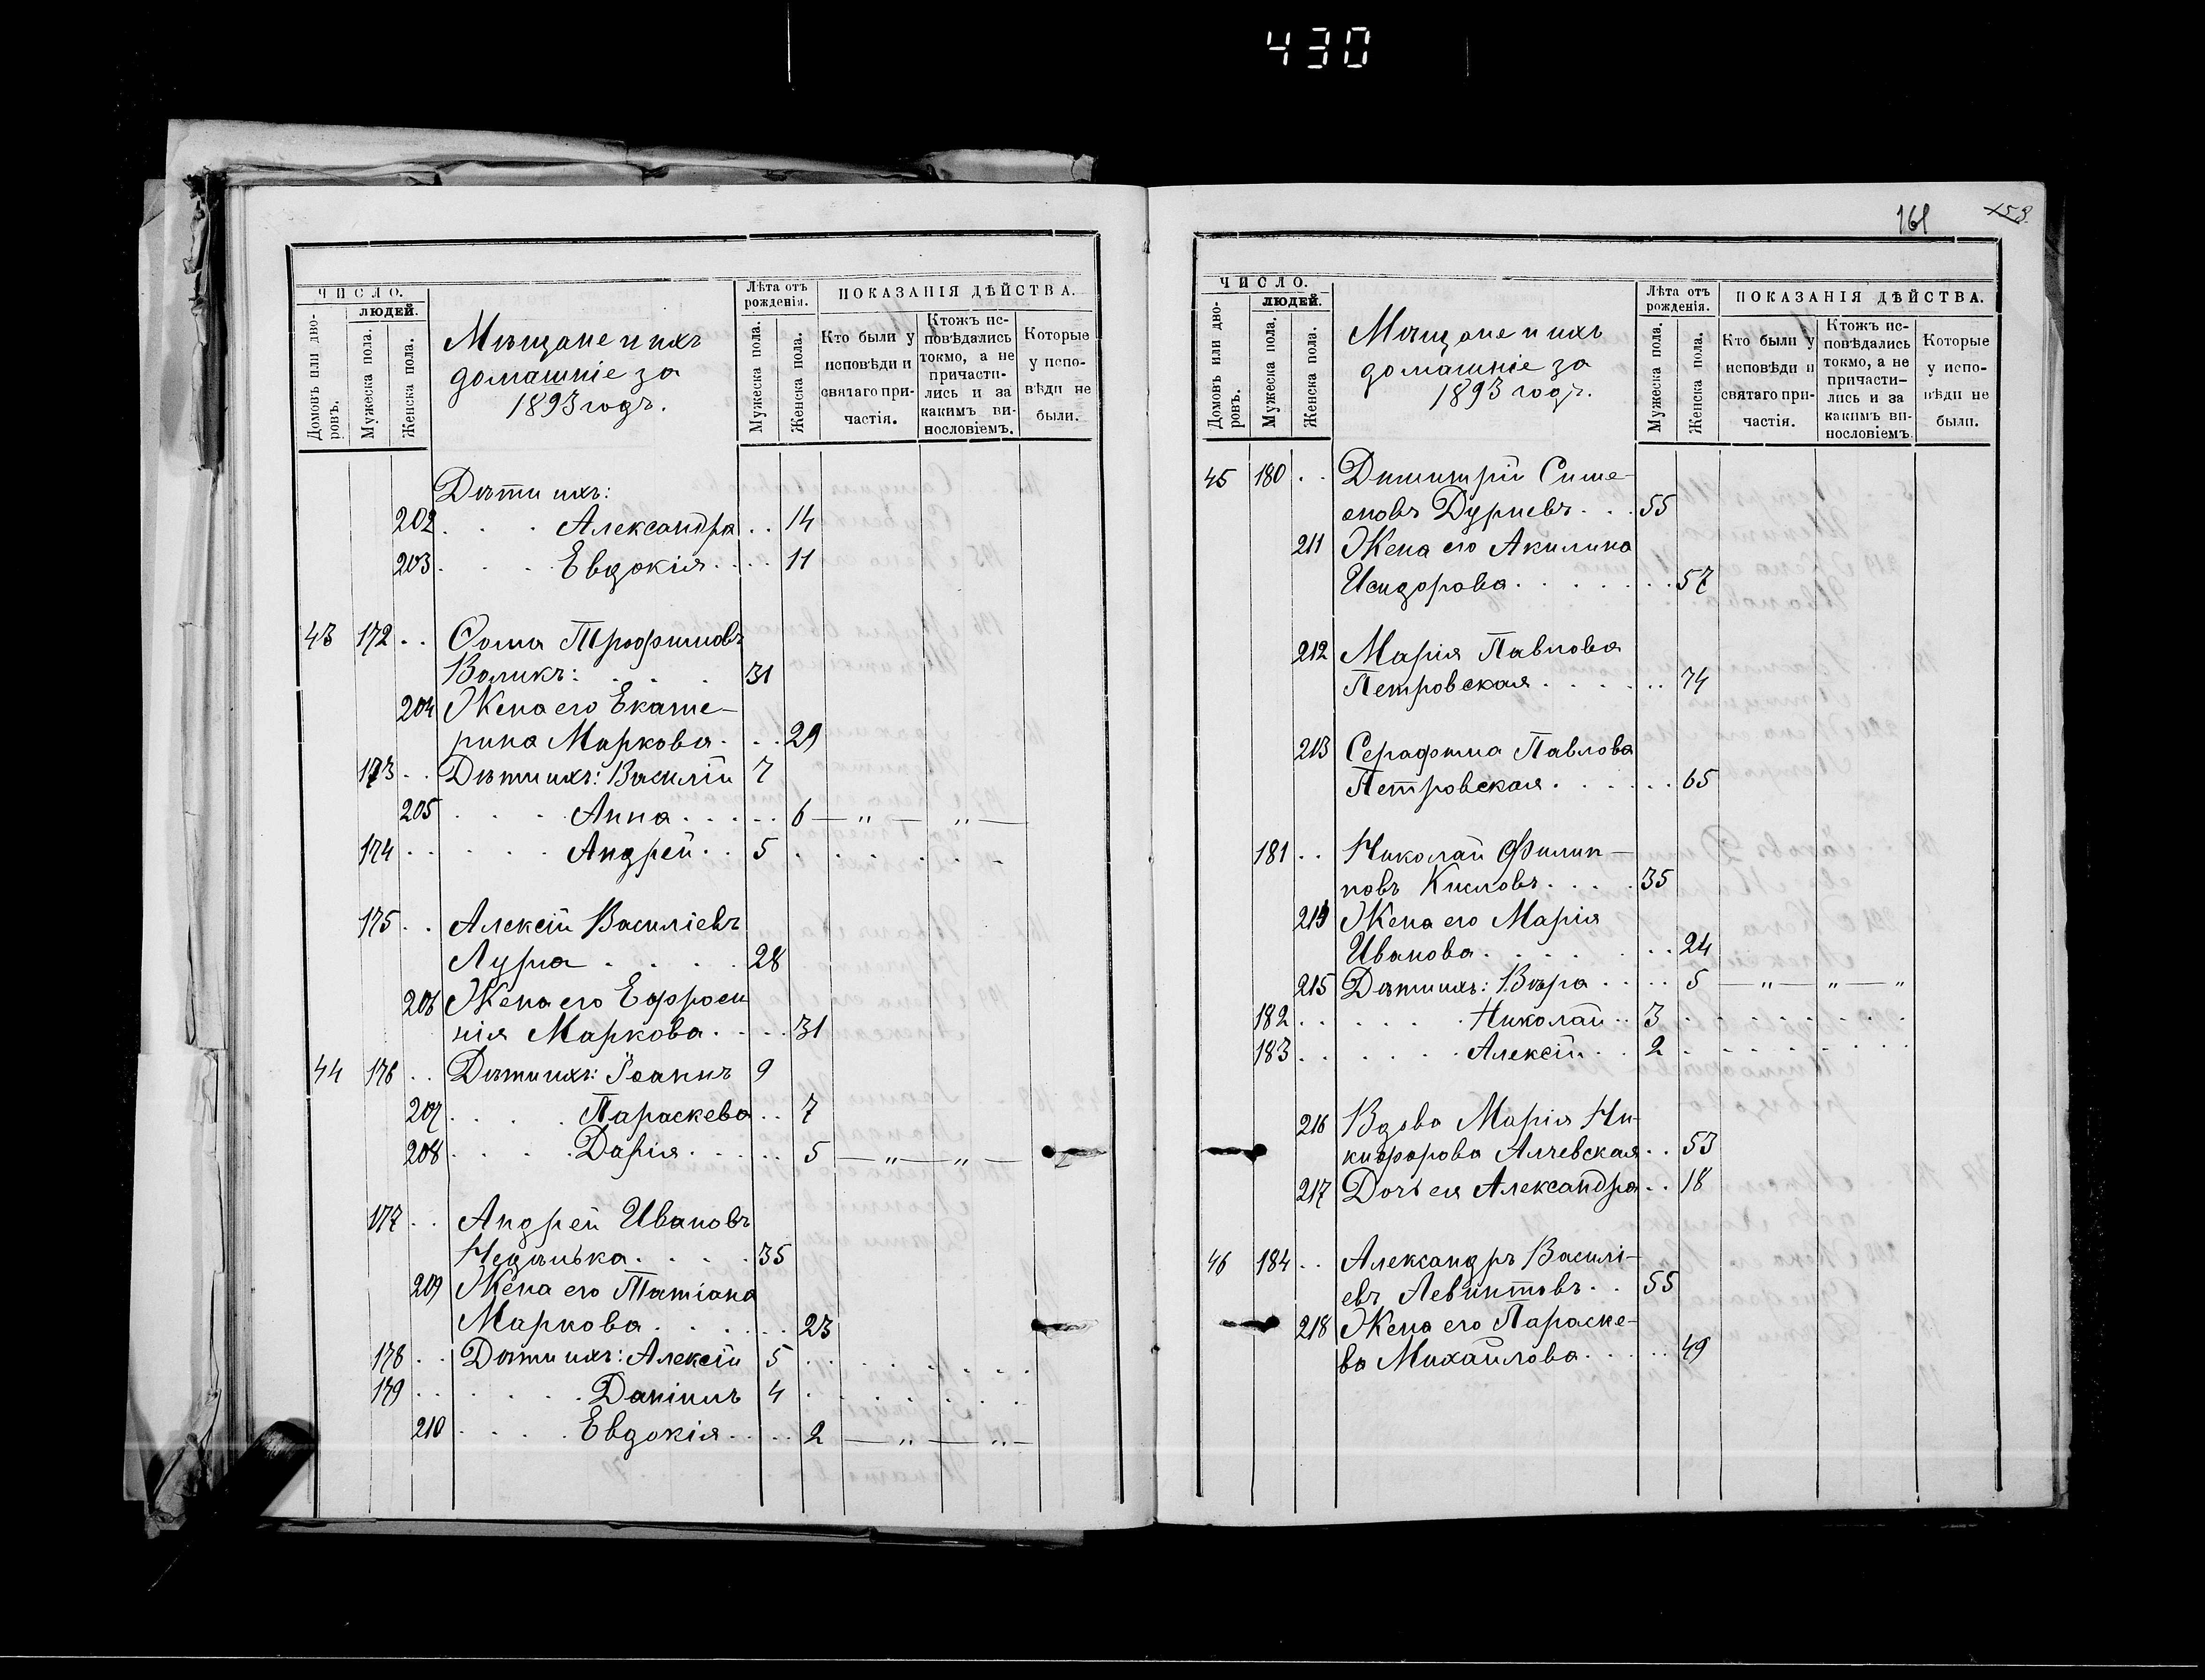 430
ЧИСЛО.
Домовъ или дворовъ.
ЛЮДЕЙ.
Мужеска пола.
Женска пола.
Мѣщане и ихъ
домашніе за
1893 годъ.
Лѣта отъ
рожденія.
Мужеска пола.
Женска пола.
ПОКАЗАНІЯ ДѢЙСТВА.
Кто были у
исповѣди и
святаго при-
частія.
Ктожъ ис-
повѣдались
токмо, а не
причасти-
лись и за
какимъ ви-
нословіемъ.
Которые
у испо-
вѣди не
были.
Дѣти ихъ:
202 . . . Александра . . 14
203 . . . Евдокія . . . . 11
43 172 . . Ѳома Трофимовъ
Воликъ: . . . . 31
204 Жена его Екате-
рина Маркова . . . 29
173 . . Дѣти ихъ: Василій 7
205 . . . Анна . . . . . 6 — „ — „ —
174 . . . . . Андрей . . 5 . . . . . .
175 . . Алексій Василіевъ
Лурпа . . . . 28
206 Жена его Ефроси
нія Маркова . . . . 31
44 176 . . Дѣти ихъ: Іоаннъ 9
207 . . . . Параскева . . 7
208 . . . . Дарія . . . . . 5 — „ — „ —
177 . . Андрей Ивановъ
Недѣлька . . . . 35
209 Жена его Татіана
Маркова . . . . . . 23
178 . . Дѣти ихъ: Алексій 5 . . . . . . .
179 . . . . . . Даніилъ 4 . . . . . . .
210 . . . . Евдокія . . . . 2 — „ — „ —
161 158.
ЧИСЛО.
Домовъ или дворовъ.
ЛЮДЕЙ.
Мужеска пола.
Женска пола.
Мѣщане и ихъ
домашніе за
1893 годъ.
Лѣта отъ
рожденія.
Мужеска пола.
Женска пола.
ПОКАЗАНІЯ ДѢЙСТВА.
Кто были у
исповѣди и
святаго при-
частія.
Ктожъ ис-
повѣдались
токмо, а не
причасти-
лись и за
какимъ ви-
нословіемъ
Которые
у испо-
вѣди не
были.
45 180 . . Димитрій Симе-
оновъ Дурневъ . . . 55
211 Жена его Акилина
Исидорова . . . . . . . 57
212 Марія Павлова
Петровская . . . . . . . 74
213 Серафима Павлова
Петровская . . . . . . 65
181 . . Николай Филип-
повъ Кисловъ . . . . 35
214 Жена его Марія
Иванова . . . . . . 24
215 Дѣти ихъ: Вѣра . . . . 5 — „ — „ — „
182 . . . . . . Николай . . 3 . . . . . . .
183 . . . . . . Алексій . . 2 . . . . . . .
216 Вдова Марія Ни-
кифорова Алчевская . . 53
217 Дочь ея Александра . . 18
46 184 . . Александръ Василі-
евъ Левинтовъ . . 55
218 Жена его Параске-
ва Михайлова . . . . . 49